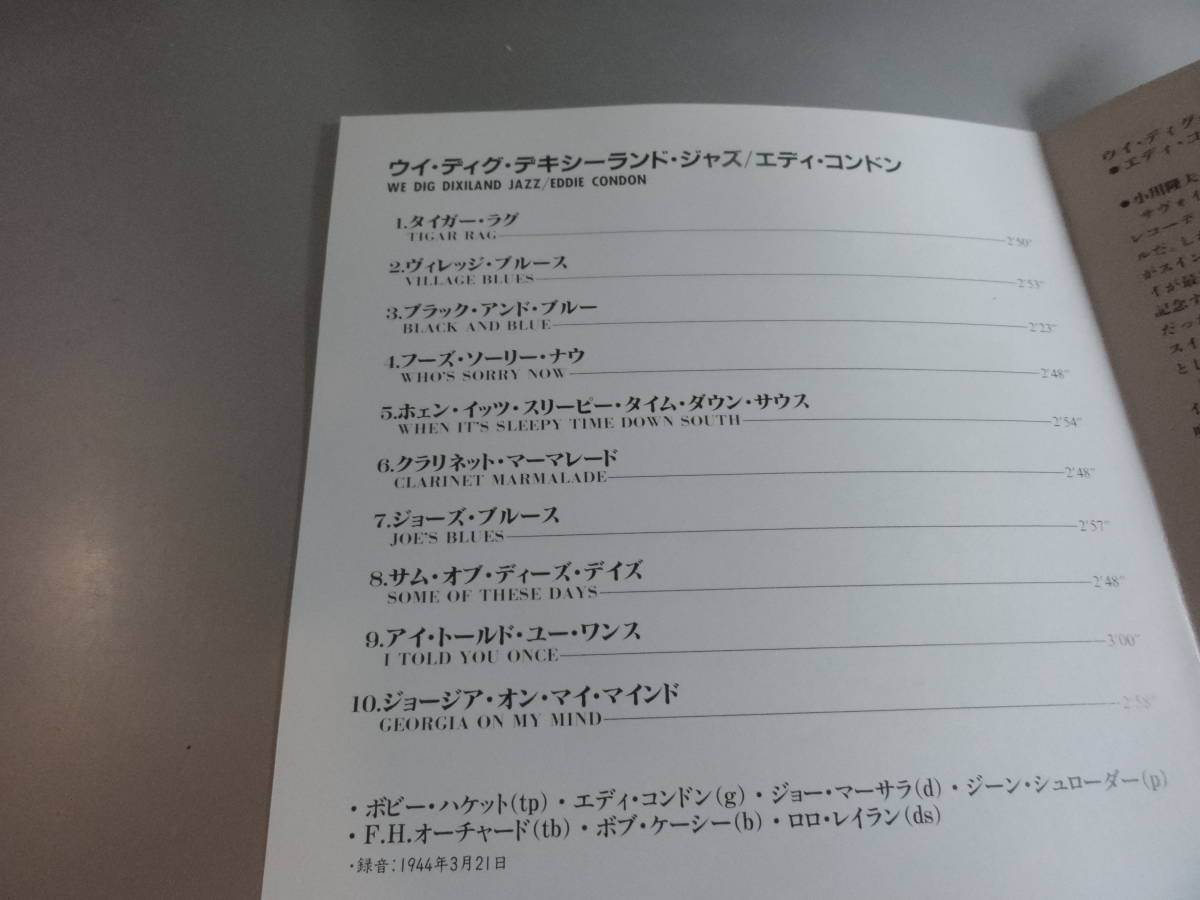 ウイ・ディグ・デキシーランド・ジャズ/エディ・コンドン
WE DIG DIXILAND JAZZ/EDDIE CONDON
1.タイガー・ラグ
TIGAR RAG 2'50"
2.ヴィレッジ・ブルース
VILLAGE BLUES 2'53"
3.ブラック・アンド・ブルー
BLACK AND BLUE 2'23"
4.フーズ・ソーリー・ナウ
WHO'S SORRY NOW 2'48"
5.ホェン・イッツ・スリーピー・タイム・ダウン・サウス
WHEN IT'S SLEEPY TIME DOWN SOUTH 2'54"
6.クラリネット・マーマレード
CLARINET MARMALADE 2'48"
7.ジョーズ・ブルース
JOE'S BLUES 2'57"
8.サム・オブ・ディーズ・デイズ
SOME OF THESE DAYS 2'48"
9.アイ・トールド・ユー・ワンス
I TOLD YOU ONCE 3'00"
10.ジョージア・オン・マイ・マインド
GEORGIA ON MY MIND 2'58"
・ボビー・ハケット(tp)・エディ・コンドン(g)・ジョー・マーサラ(d)・ジーン・シュローダー(p)
・F.H.オーチャード(tb)・ボブ・ケーシー(b)・ロロ・レイラン(ds)
・録音:1944年3月21日
ウイ・ディグ
●エディ・コ
●小川隆夫
サヴォイ
レコーデ
ルだ。しか
がスイン
イが最
記念す
だっ
スイ
とし